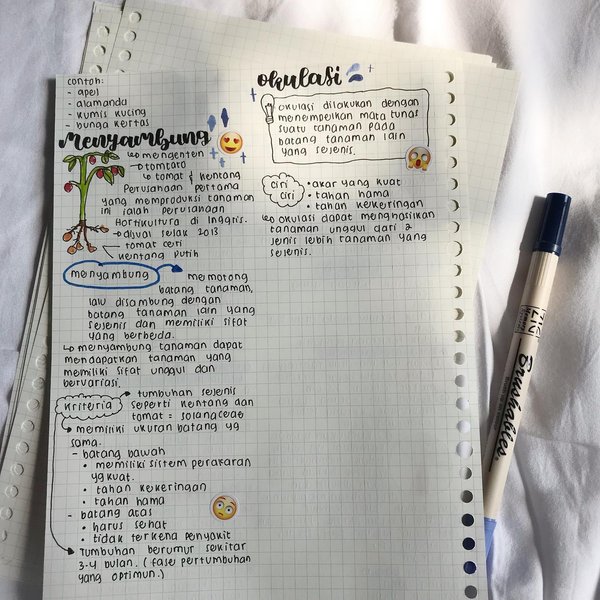 contoh:
- apel
- alamanda
- kumis kucing
- bunga kertas
Menyambung
↳ mengenten
↳ tomtato
↳ tomat & kentang
Perusahaan pertama
yang memproduksi tanaman
ini ialah perusahaan
Hortikultura di Inggris.
↳ dijual sejak 2013
tomat ceri
kentang putih
menyambung → memotong
batang tanaman,
lalu disambung dengan
batang tanaman lain yang
sejenis dan memiliki sifat
yang berbeda.
↳ menyambung tanaman dapat
mendapatkan tanaman yang
memiliki sifat unggul dan
bervariasi.
kriteria
tumbuhan sejenis
seperti kentang dan
tomat = solanaceae
memiliki ukuran batang yg
sama.
- batang bawah
• memiliki sistem perakaran
yg kuat.
• tahan kekeringan
• tahan hama
- batang atas
• harus sehat
• tidak terkena penyakit
Tumbuhan berumur sekitar
3-4 bulan. (fase pertumbuhan
yang optimun.)
okulasi
okulasi dilakukan dengan
menempelkan mata tunas
suatu tanaman pada
batang tanaman lain
yang sejenis.
ciri
ciri
• akar yang kuat
• tahan hama
• tahan kekeringan
↳ okulasi dapat menghasilkan
tanaman unggul dari 2
jenis lebih tanaman yang
sejenis.
ZIG
Brushables